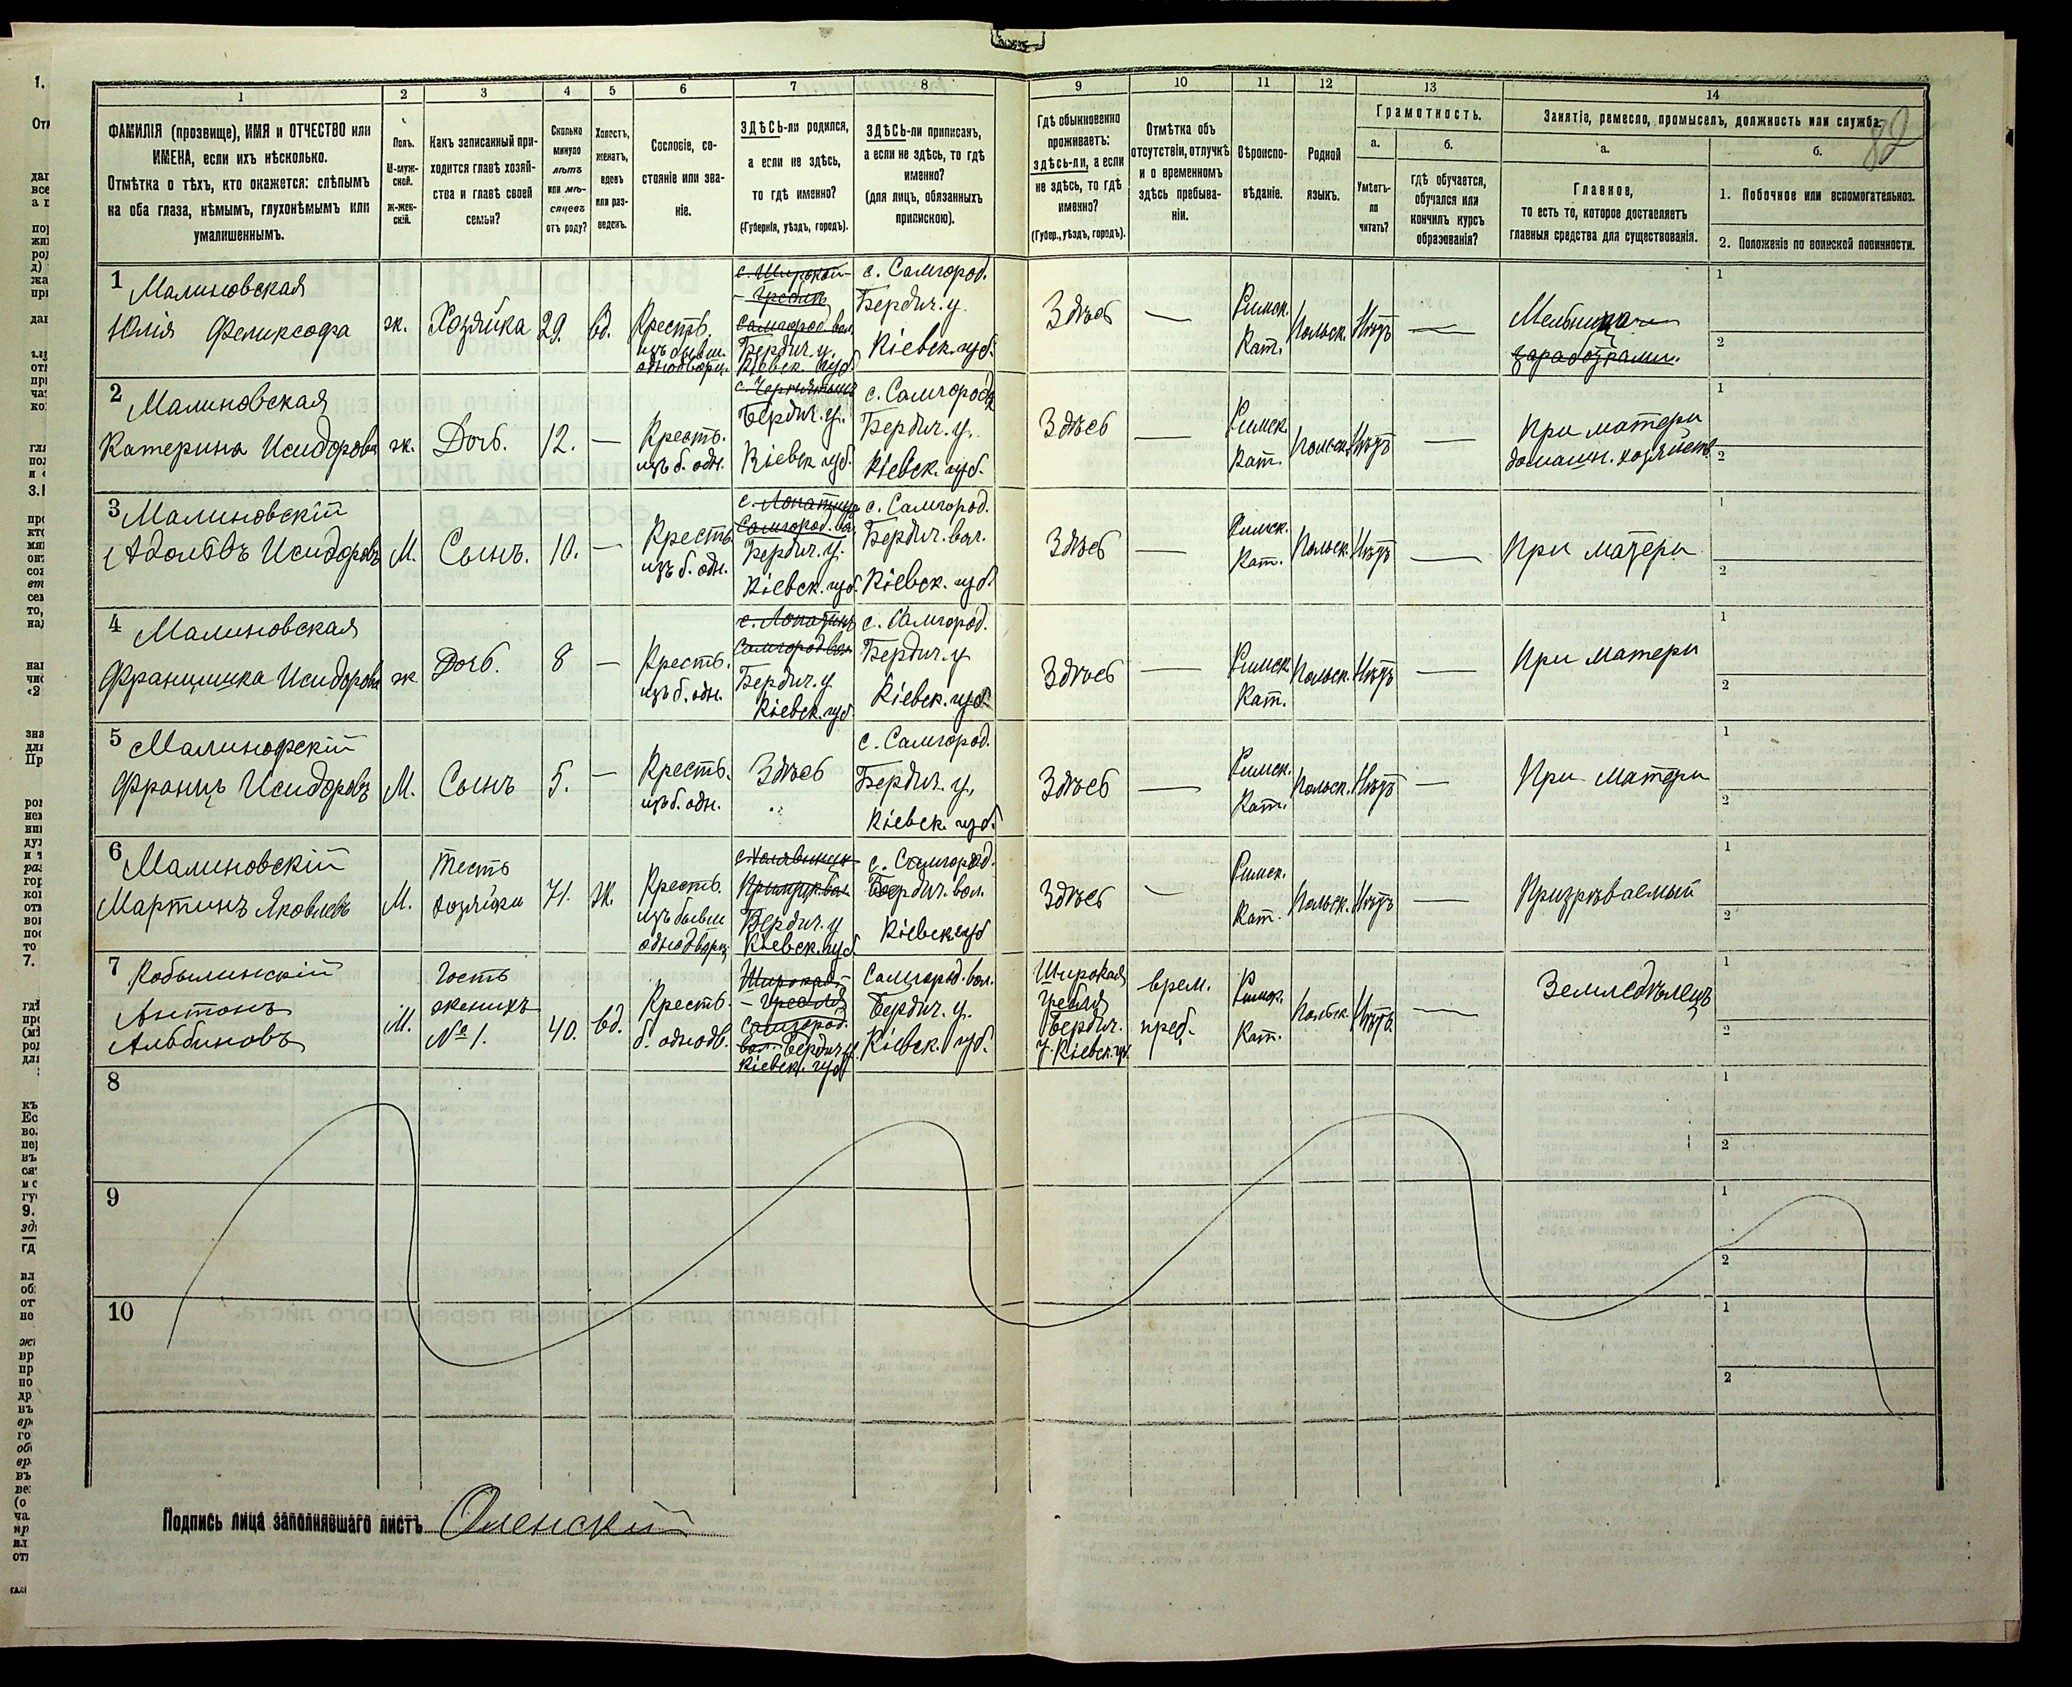 82
1 2 3 4 5 6 7 8 9 10 11 12 13 14
ФАМИЛІЯ (прозвище), ИМЯ и ОТЧЕСТВО или
ИМЕНА, если ихъ нѣсколько.
Отмѣтка о тѣхъ, кто окажется: слѣпымъ
на оба глаза, нѣмымъ, глухонѣмымъ или
умалишеннымъ.
Полъ.
М-муж-
ской.
Ж-жен-
скій.
Какъ записанный при-
ходится главѣ хозяй-
ства и главѣ своей
семьи?
Сколько
минуло
лѣтъ
или мѣ-
сяцевъ
отъ роду?
Холостъ,
женатъ,
вдовъ
или раз-
веденъ.
Сословіе, со-
стояніе или зва-
ніе.
ЗДѢСЬ-ли родился,
а если не здѣсь,
то гдѣ именно?
(Губернія, уѣздъ, городъ).
ЗДѢСЬ-ли приписанъ,
а если не здѣсь, то гдѣ
именно?
(для лицъ, обязанныхъ
припискою).
Гдѣ обыкновенно
проживаетъ:
здѣсь-ли, а если
не здѣсь, то гдѣ
именно?
(Губер., уѣздъ, городъ).
Отмѣтка объ
отсутствіи, отлучкѣ
и о временномъ
здѣсь пребыва-
ніи.
Вѣроиспо-
вѣданіе.
Родной
языкъ.
Грамотность.
а.
Умѣетъ-
ли
читать?
б.
гдѣ обучается,
обучался или
кончилъ курсъ
образованія?
Занятіе, ремесло, промыселъ, должность или служба.
а.
Главное,
то есть то, которое доставляетъ
главныя средства для существованія.
б.
1. Побочное или вспомогательное.
2. Положеніе по воинской повинности.
1
Малиновская
Юлія Феликсова
ж.
Хозяйка
29.
вд.
Крестъ.
изъ бывш.
однодворц.
с. Широкой
Гребли
Самгород. вол.
Бердич. у.
Кіевск. губ.
с. Самгород.
Бердич. у.
Кіевск. губ.
Здѣсь
—
Римск.
Кат.
Польск.
Нѣтъ
—
заработками.
1
2
2
Малиновская
Катерина Исидорова
ж.
Дочь.
12.
—
Крестъ.
изъ б. одн.
Бердич. у.
Кіевск. губ.
с. Самгородъ
Бердич. у.
Кіевск. губ.
Здѣсь
—
Римск.
Кат.
Польск.
Нѣтъ
—
При матери
домашн. хозяйств
1
2
3
Малиновскій
Адольфъ Исидоровъ
М.
Сынъ.
10.
—
Крестъ
изъ б. одн.
с. Лопатинъ
Самгород. во.
Бердич. у.
Кіевск. губ.
с. Самгород.
Бердич. вол.
Кіевск. губ.
Здѣсь
—
Римск.
Кат.
Польск.
Нѣтъ
—
При матери
1
2
4
Малиновская
Францишка Исидорова
ж
Дочь.
8
—
Крестъ.
изъ б. одн.
с. Лопатинъ
Самгород вол
Бердич. у
Кіевск. губ
с. Самгород.
Бердич. у
Кіевск. губ.
Здѣсь
—
Римск
Кат.
Польск.
Нѣтъ
—
При матери
1
2
5
Малиновскій
Францъ Исидоровъ
М.
Сынъ
5.
—
Крестъ.
изъ б. одн.
Здѣсь
с. Самгород.
Бердич. у.
Кіевск. губ.
Здѣсь
—
Римск.
Кат.
Польск.
Нѣтъ
—
При матери
1
2
6
Малиновскій
Мартинъ Яковлевъ
М.
Тесть
хозяйки
71.
ж.
Крестъ.
изъ бывш
однодворц
Бердич. у
Кіевск. губ
с. Самгород.
Бердич. вол.
Кіевск губ
Здѣсь
—
Римск.
Кат.
Польск.
Нѣтъ
—
Призрѣваемый
1
2
7
Кобылинскій
Антонъ
Альбиновъ
М.
Гость
женихъ
№ 1.
40.
вд.
Крестъ.
б. однодв.
Широкой
Гребля
Самгород.
вол. Бердич. у
Кіевск. губ
Самгород. вол.
Бердич. у.
Кіевск. губ.
Широкая
Гребля
Бердич.
у. Кіевск. губ.
врем.
преб.
Римск.
Кат.
Польск
Нѣтъ.
—
Земледѣлецъ
1
2
8
1
2
9
1
2
10
1
2
Подпись лица заполнявшаго листъ Оленскій